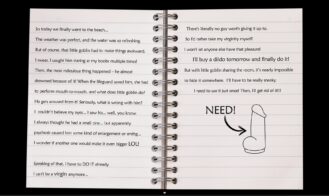 So today we finally went to the beach...
The weather was perfect, and the water was so refreshing.
But of course, that little goblin had to make things awkward.
I swear, I caught him staring at my boobs multiple times!
Then, the most ridiculous thing happened - he almost
drowned because of it! When the lifeguard saved him, she had
to perform mouth-to-mouth, and what does little goblin do?
He gets aroused from it! Seriously, what is wrong with him?
I couldn't believe my eyes... I saw his... well, you know.
I always thought he had a small one... but apparently
puberty caused him some kind of enlargement or
I wonder if another one would make it even bigger LOL!
Speaking of that, I have to DO IT already.
I can't be a virgin anymore...
There's literally no guy worth giving it up to.
So I'd rather take my virginity myself.
I won't let anyone else have that pleasure!
I'll buy a dildo tomorrow and finally do it!
But with little goblin sharing the room, it's nearly impossible
to hide it somewhere. I'll have to be really sneaky.
I need to use it just once! Then, I'll get rid of it!!
NEED!